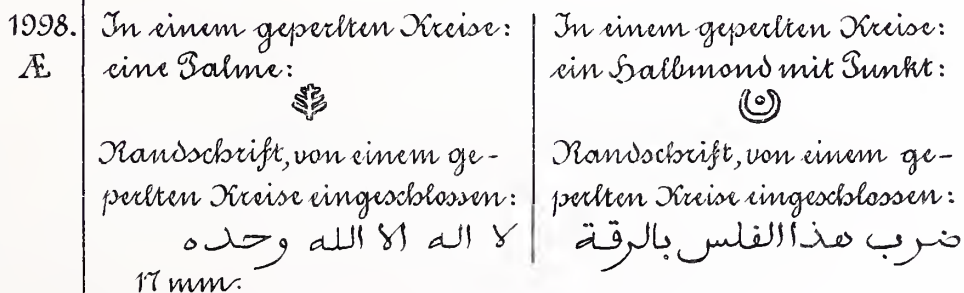 1998.
Æ
In einem geperlten Kreise:
eine Palme:
Randschrift, von einem ge-
perlten Kreise eingeschlossen:
لا اله الا الله وحده
17 mm.
In einem geperlten Kreise:
ein Halbmond mit Punkt:
Randschrift, von einem ge-
perlten Kreise eingeschlossen:
ضرب هذا الفلس بالرقة